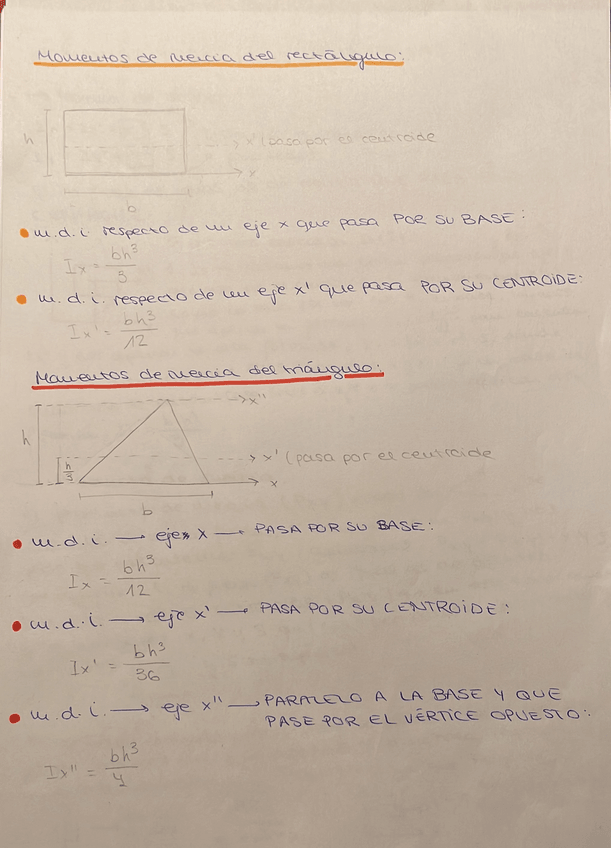 Momentos de inercia del rectángulo:
h
x' (pasa por el centroide
x
b
m.d.i. respecto de un eje x que pasa POR SU BASE:
Ix = bh³/3
m.d.i. respecto de un eje x' que pasa POR SU CENTROIDE:
Ix' = bh³/12
Momentos de inercia del triángulo:
x''
h
h/3
x' (pasa por el centroide
x
b
m.d.i. → eje x → PASA POR SU BASE:
Ix = bh³/12
m.d.i. → eje x' → PASA POR SU CENTROIDE:
Ix' = bh³/36
m.d.i. → eje x'' → PARALELO A LA BASE Y QUE
PASE POR EL VÉRTICE OPUESTO:
Ix'' = bh³/4